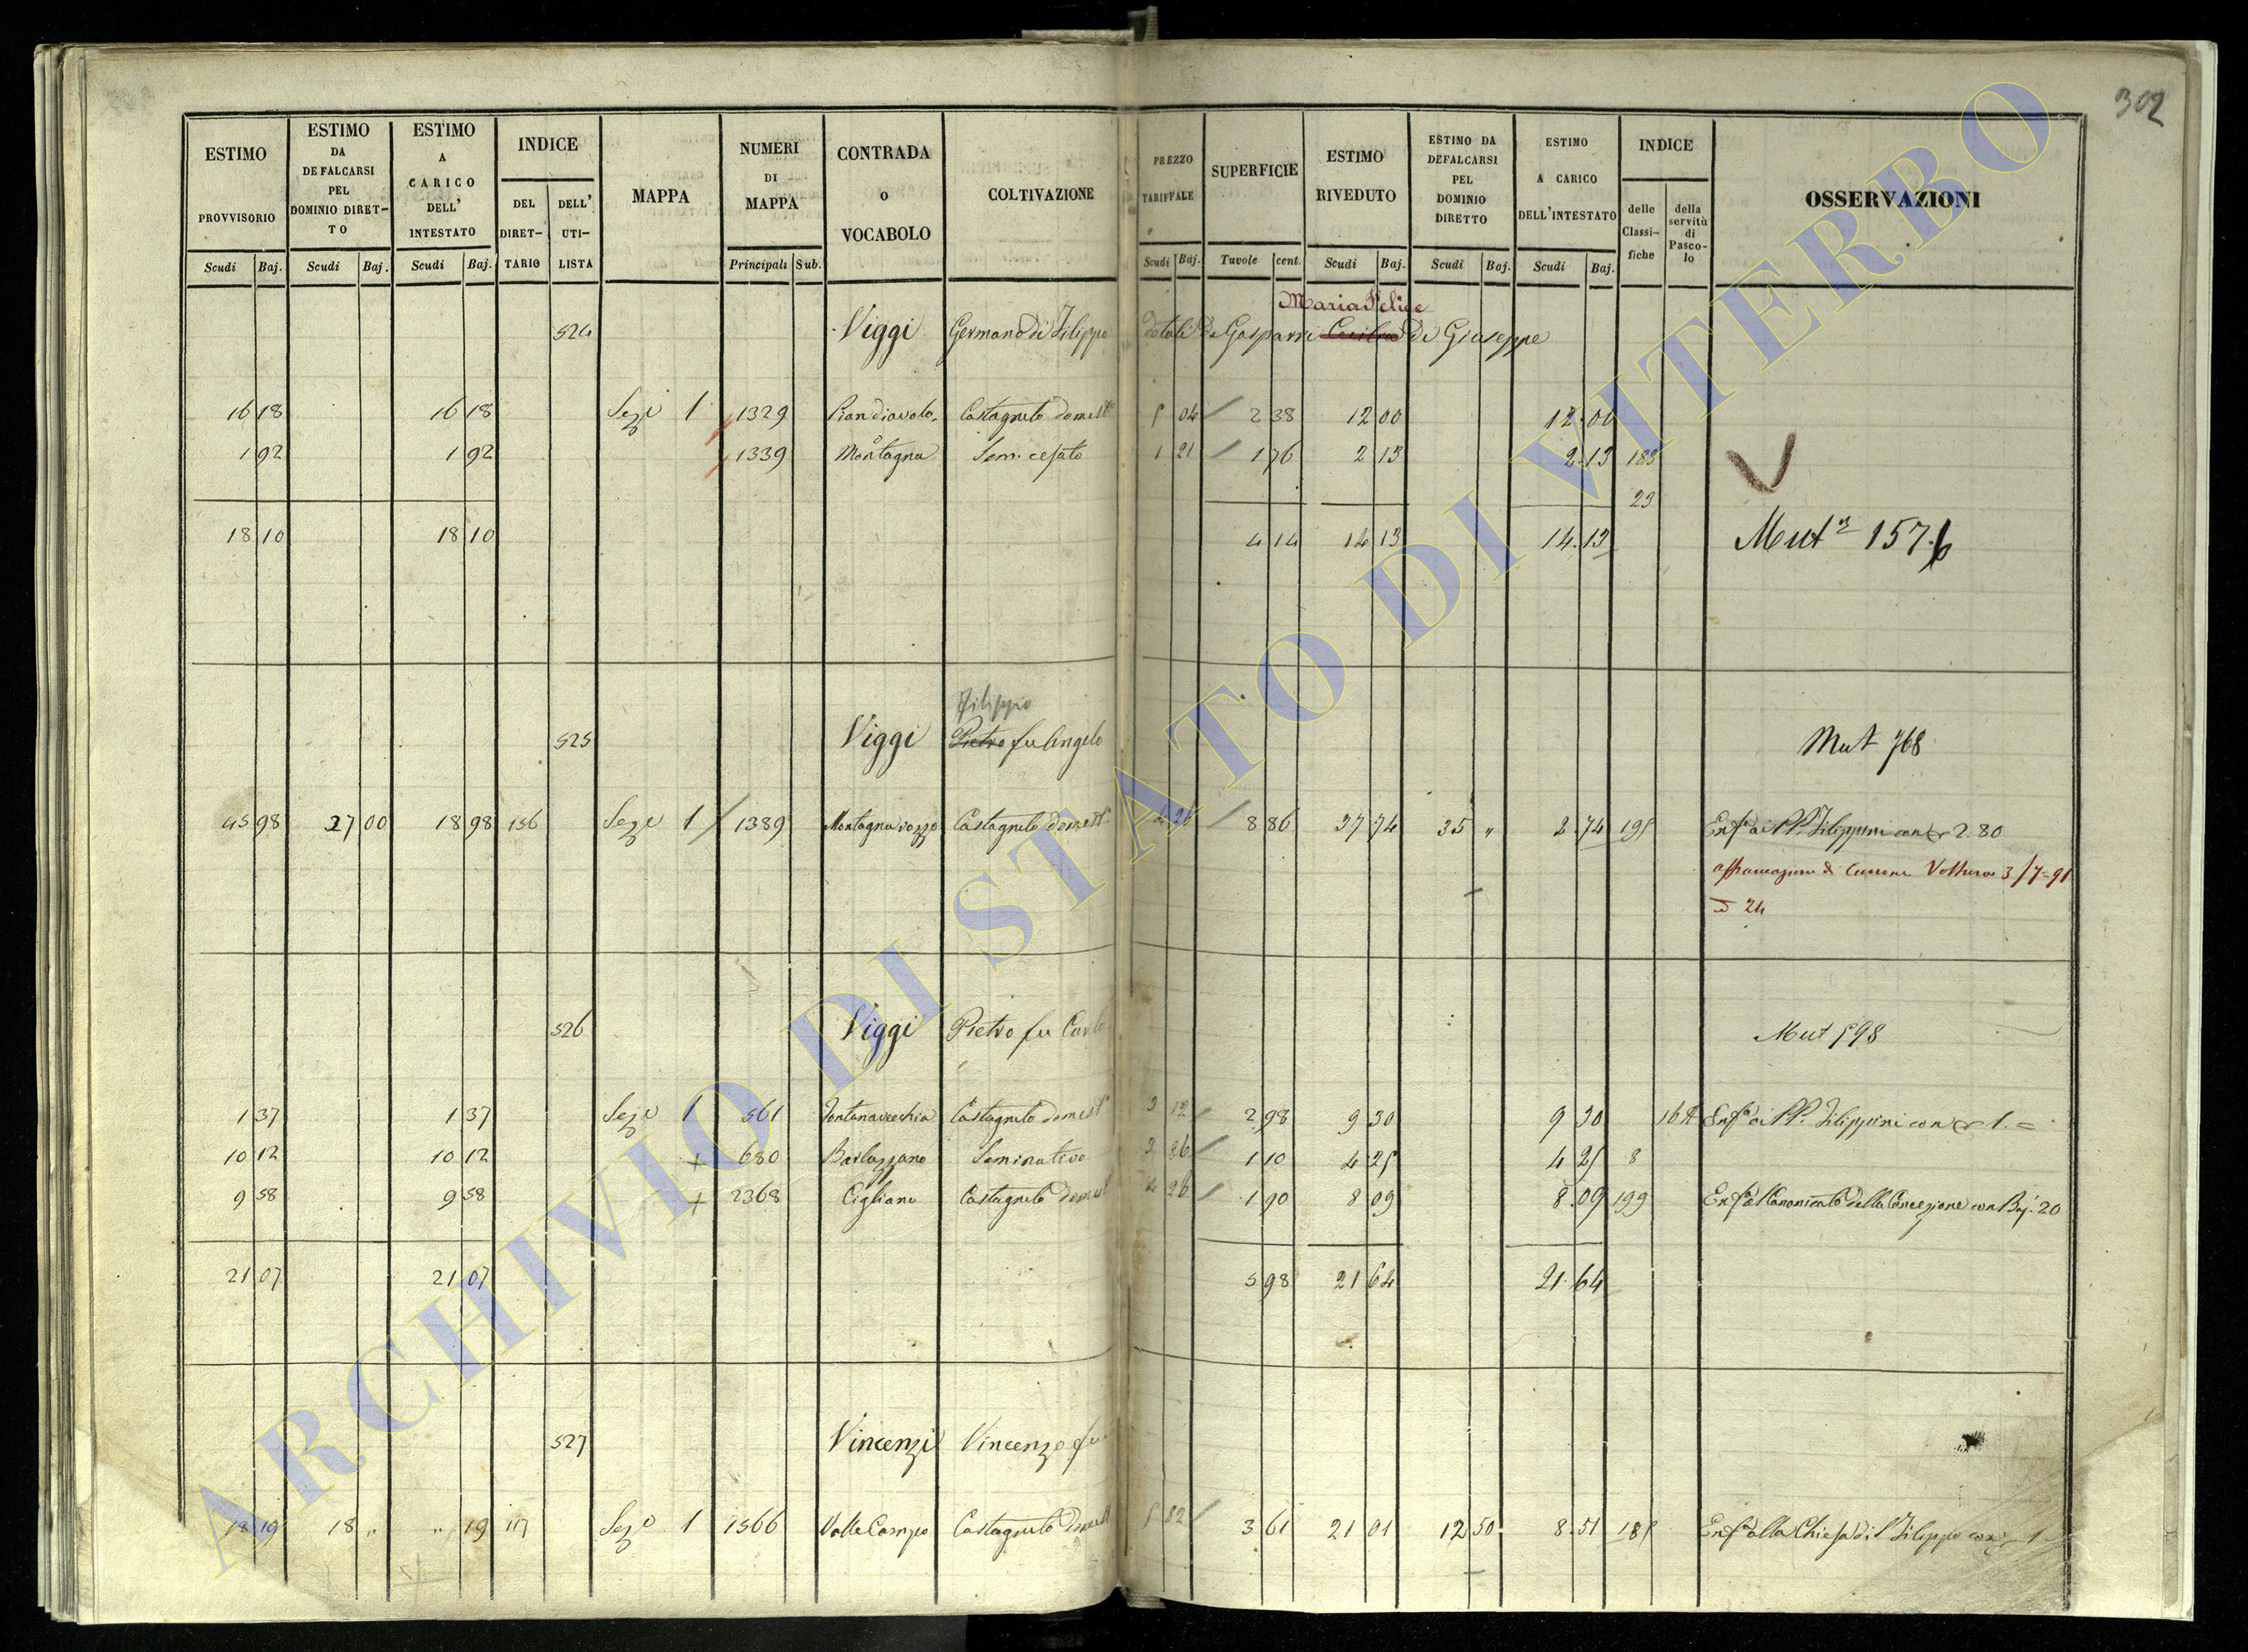 302
ESTIMO PROVVISORIO
ESTIMO DA DEFALCARSI PEL DOMINIO DIRET-TO
ESTIMO A CARICO DELL' INTESTATO
INDICE
DEL DIRET-TARIO
DELL' UTI-LISTA
MAPPA
NUMERI DI MAPPA
CONTRADA o VOCABOLO
COLTIVAZIONE
PREZZO TARIFFALE
SUPERFICIE
ESTIMO RIVEDUTO
ESTIMO DA DEFALCARSI PEL DOMINIO DIRETTO
ESTIMO A CARICO DELL'INTESTATO
INDICE
delle Classi-fiche
della servitù di Pasco-lo
OSSERVAZIONI
Scudi Baj. Scudi Baj. Scudi Baj. Principali Sub. Scudi Baj. Tavole cent. Scudi Baj. Scudi Baj. Scudi Baj.
Maria Felice
524 Viggi Germano di Filippo dotali De Gasparri di Giuseppe
16 18 16 18 Seze 1 1329 Piandiavolo Castagneto domest. 5 04 2 38 12 00 12.00
1 92 1 92 1339 Montagna Sem. cesato 1 21 1 76 2 13 2.13 183
23
18 10 18 10 4 14 14 13 14.13 Mut. 157
Filippo
525 Viggi Pietro fu Angelo Mut 768
45 98 27 00 18 98 156 Seze 1 1389 Castagneto domest. 4 26 8 86 37 74 35 " 2 74 195 Enf. ai PP. Filippini con 2.80
3/7-91
24
526 Viggi Pietro fu Carlo Mut 598
1 37 1 37 Seze 1 561 Fontanavecchia Castagneto domest. 3 12 2 98 9 30 9 30 Enf. ai PP. Filippini con 1.=
10 12 10 12 + 680 Barlozzano Seminativo 3 86 1 10 4 25 4 25 8
9 58 9 58 + 2368 Cigliano Castagneto domest 4 26 1 90 8 09 8.09 199 Enf. al Canonicato della Concezione con Baj. 20
21 07 21 07 5 98 21 64 21.64
527 Vincenzi Vincenzo fu
18 19 18 " " 19 117 Seze 1 1566 Valle Campo Castagneto domest 5 82 3 61 21 01 12 50 8.51 185 Enf. alla Chiesa di S. Filippo con 1
ARCHIVIO DI STATO DI VITERBO